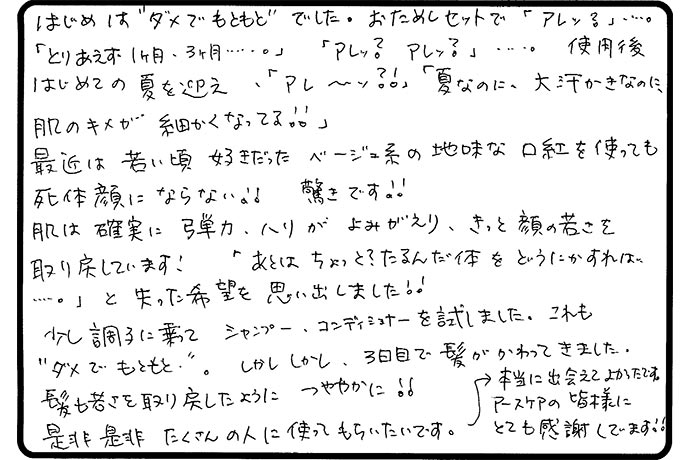 はじめは"ダメでもともと"でした。おためしセットで「アレッ?」‥‥。
「とりあえず1ヶ月、3ヶ月‥‥‥。」「アレッ? アレッ?」‥‥。使用後
はじめての夏を迎え、「アレ〜ッ?!!」「夏なのに、大汗かきなのに、
肌のキメが細かくなってる!!」
最近は若い頃好きだったベージュ系の地味な口紅を使っても
死体顔にならない!! 驚きです!!
肌は確実に弾力、ハリがよみがえり、きっと顔の若さを
取り戻しています! 「あとはちょっと?たるんだ体をどうにかすれば、
‥‥。」と失った希望を思い出しました!!
少し調子に乗ってシャンプー、コンディショナーを試しました。これも
"ダメでもともと"。しかししかし、3日目で髪がかわってきました。
髪も若さを取り戻したようにつややかに!!
是非是非たくさんの人に使ってもらいたいです。
→本当に出会えてよかったです。
アースケアの皆様に
とても感謝しています!!